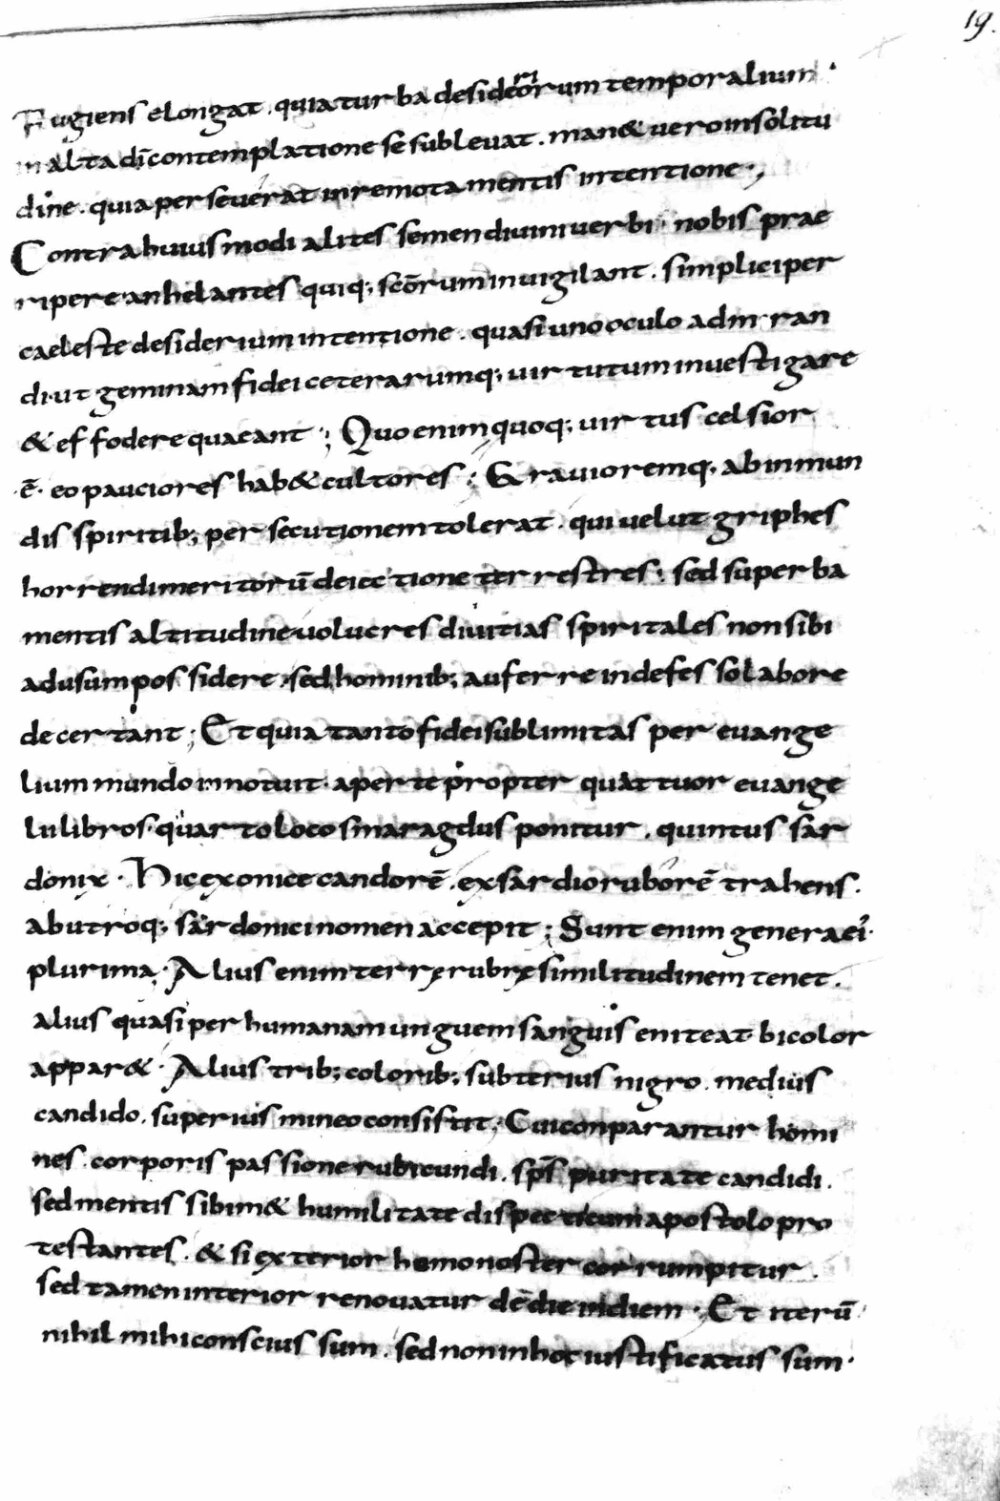 19.
Fugiens elongat. quia turba desideriorum temporalium
in alta dī contemplatione se sublevat. man& vero in solitu
dine. quia perseverat in remota mentis intentione.,
Contra huiusmodi alites semen divini verbi. nobis prae
ripere anhelantes quiq; scōrum invigilant. simplici per
caeleste desiderium intentione. quasi uno oculo admiran
di. ut geminam fidei ceterarumq; virtutum investigare
& effodere quaeant; Quo enim quoq; virtus celsior
.ē. eo pauciores hab& cultores; Gravioremq. ab inmun
dis spiritib; persecutionem tolerat. qui velut griphes
horrendi meritorū deiectione terrestres; sed superba
mentis altitudine volucres divitias spiritales non sibi
ad usum possidere; sed hominib; auferre indefesso labore
decertant; Et quia tanto fidei sublimitas per evange
lium mundo innotuit. aperte propter quattuor evange
lii libros. quarto loco smaragdus ponitur. quintus sar
donix. Hic ex onice candorē. ex sardio ruborē trahens.
ab utroq; sardonici nomen accepit; Sunt enim genera ei'
plurima; Alius enim terrę rubrę similitudinem tenet.
alius quasi per humanam unguem sanguis eniteat bicolor
appar&. Alius trib; colorib; subterius nigro. medius
candido. superius mineo consistit; Cui conparantur homi
nes. corporis passione rubicundi. sp̄s puritate candidi.
sed mentis sibim& humilitate dispecti cum apostolo pro
testantes. & si exterior homo noster corrumpitur.
sed tamen interior renovatur de die in diem. Et iterū
nihil mihi conscius sum. sed non in hoc iustificatus sum.